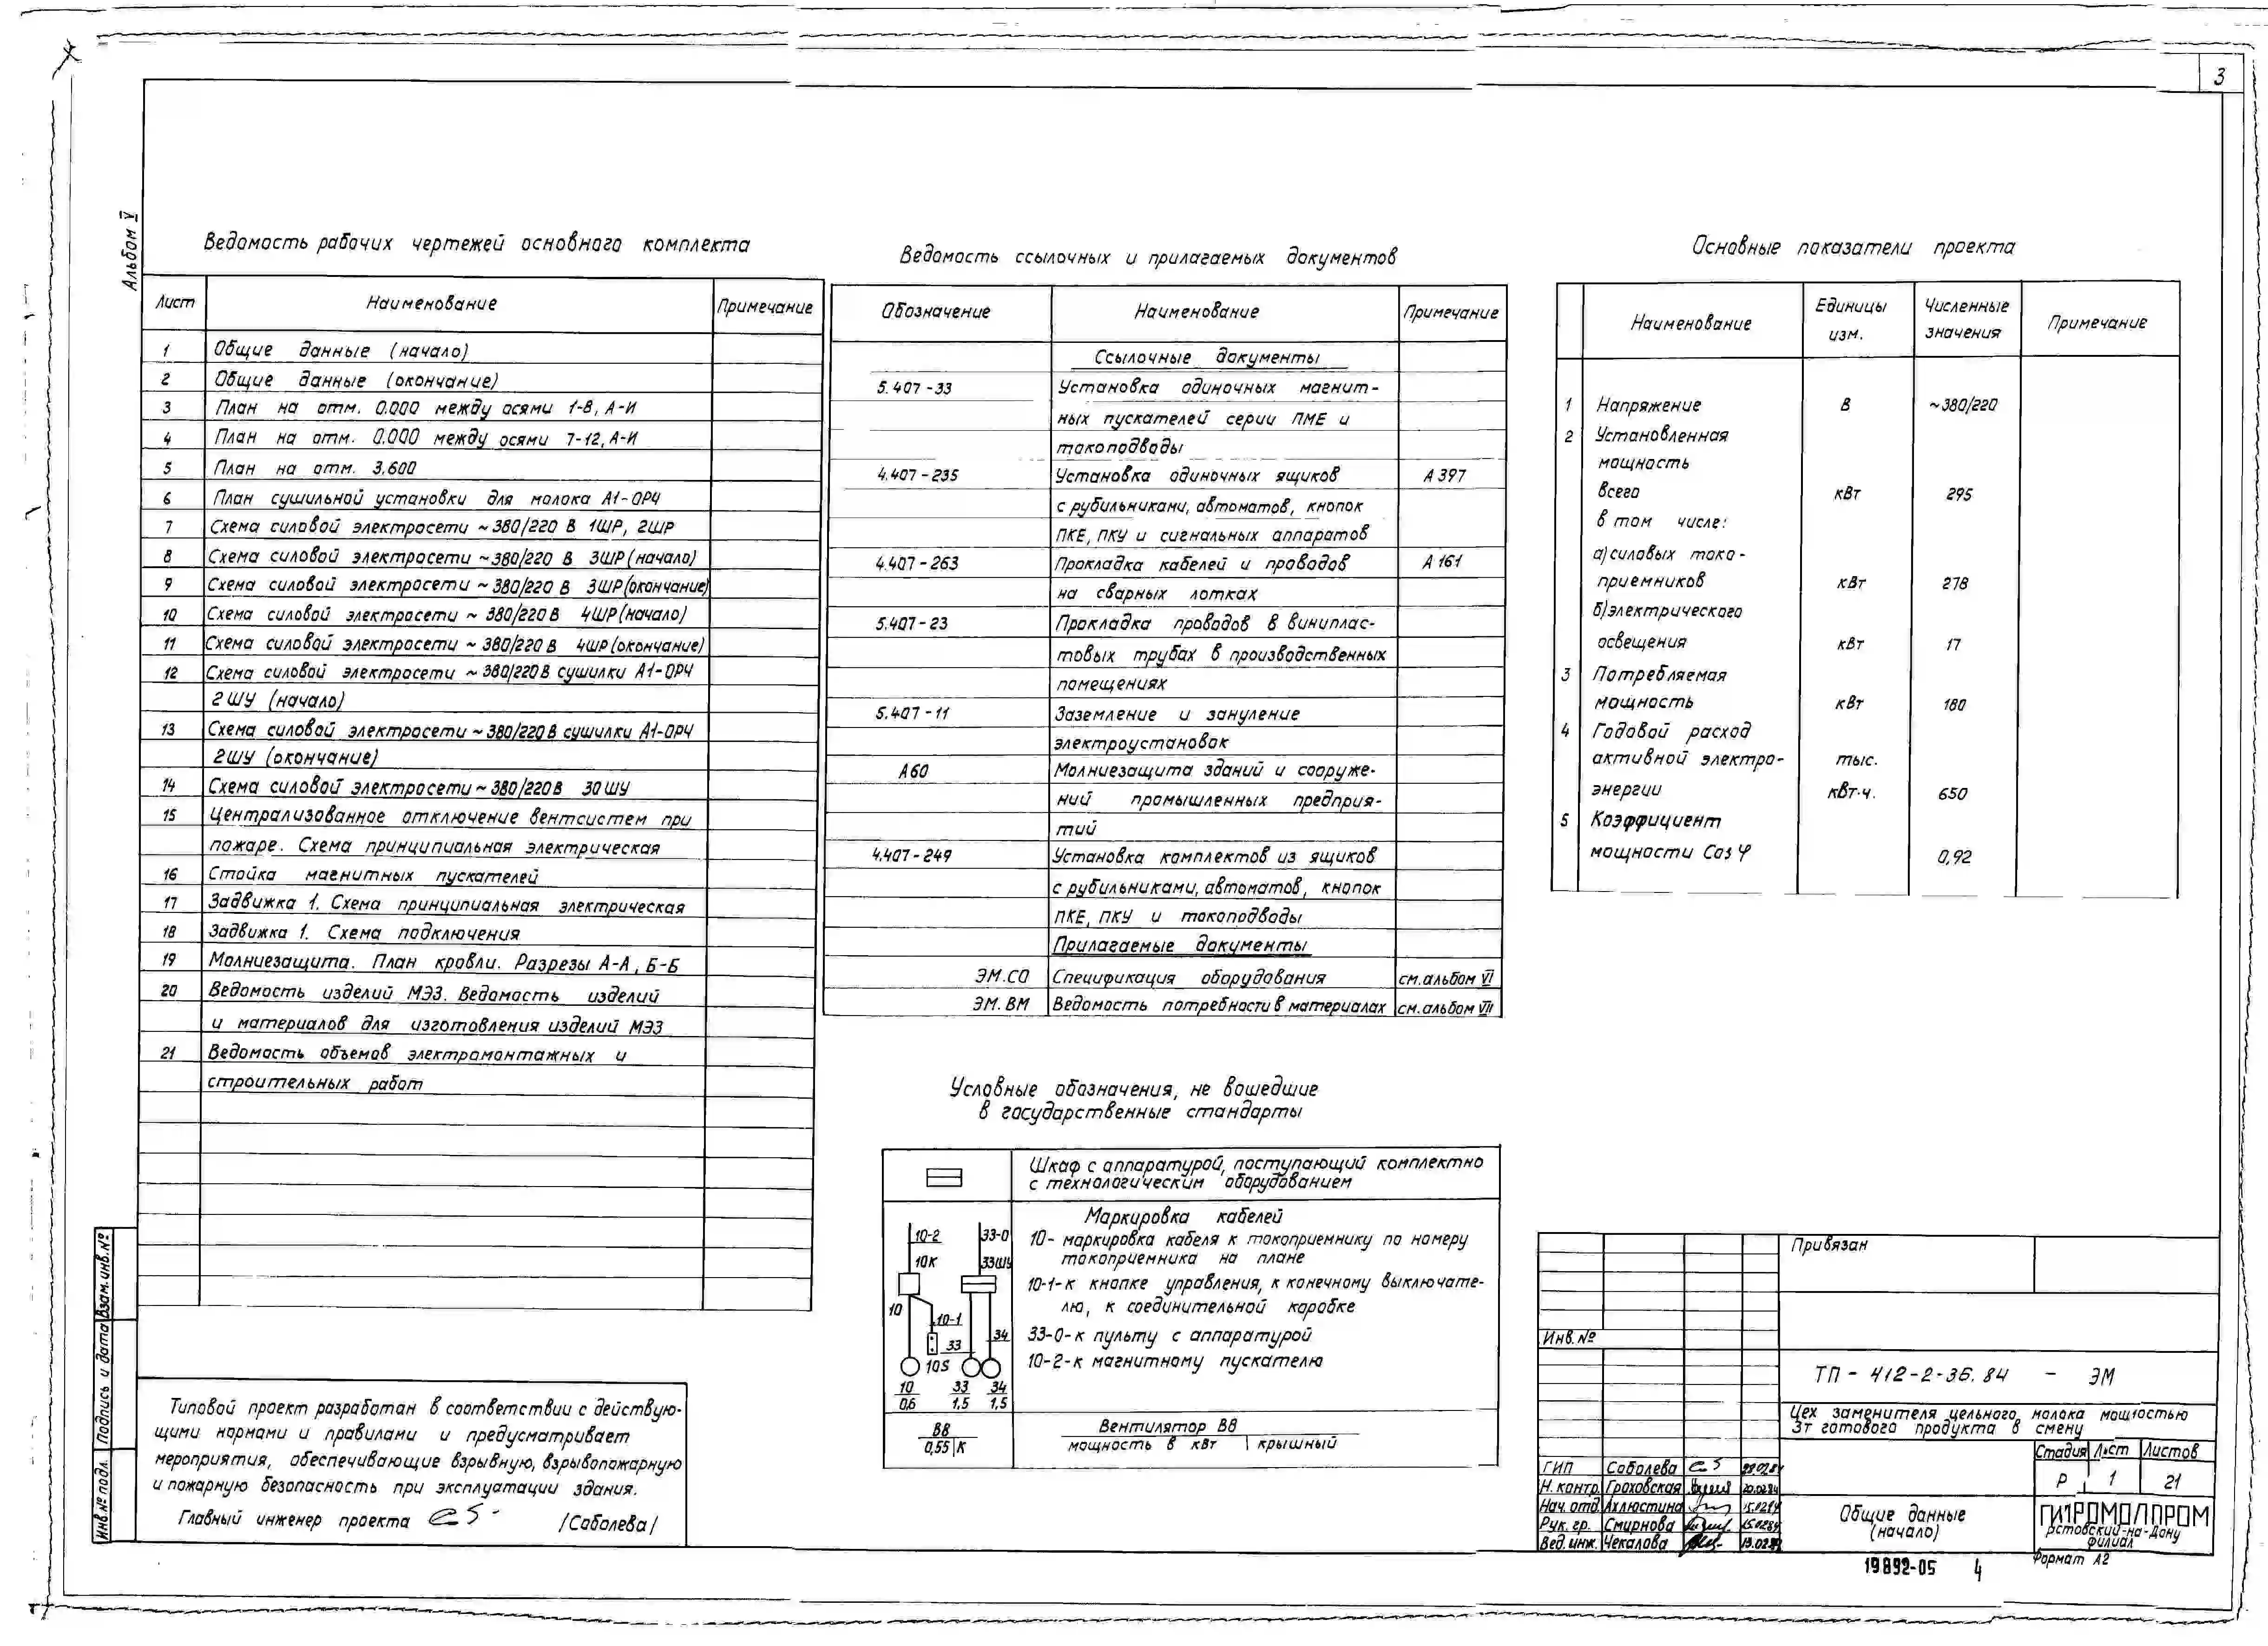 3
Альбом V
Ведомость рабочих чертежей основного комплекта
Лист Наименование Примечание
1 Общие данные (начало)
2 Общие данные (окончание)
3 План на отм. 0.000 между осями 1-8, А-И
4 План на отм. 0.000 между осями 7-12, А-И
5 План на отм. 3.600
6 План сушильной установки для молока А1-ОРЧ
7 Схема силовой электросети ~380/220 В 1ШР, 2ШР
8 Схема силовой электросети ~380/220 В 3ШР (начало)
9 Схема силовой электросети ~380/220 В 3ШР (окончание)
10 Схема силовой электросети ~380/220 В 4ШР (начало)
11 Схема силовой электросети ~380/220 В 4ШР (окончание)
12 Схема силовой электросети ~380/220 В сушилки А1-ОРЧ
2ШУ (начало)
13 Схема силовой электросети ~380/220 В сушилки А1-ОРЧ
2ШУ (окончание)
14 Схема силовой электросети ~380/220 В 30ШУ
15 Централизованное отключение вентсистем при
пожаре. Схема принципиальная электрическая
16 Стойка магнитных пускателей
17 Задвижка 1. Схема принципиальная электрическая
18 Задвижка 1. Схема подключения
19 Молниезащита. План кровли. Разрезы А-А, Б-Б
20 Ведомость изделий МЭЗ. Ведомость изделий
и материалов для изготовления изделий МЭЗ
21 Ведомость объемов электромонтажных и
строительных работ
Ведомость ссылочных и прилагаемых документов
Обозначение Наименование Примечание
Ссылочные документы
5.407-33 Установка одиночных магнит-
ных пускателей серии ПМЕ и
токоподводы
4.407-235 Установка одиночных ящиков А397
с рубильниками, автоматов, кнопок
ПКЕ, ПКУ и сигнальных аппаратов
4.407-263 Прокладка кабелей и проводов А161
на сварных лотках
5.407-23 Прокладка проводов в виниплас-
товых трубах в производственных
помещениях
5.407-11 Заземление и зануление
электроустановок
А60 Молниезащита зданий и сооруже-
ний промышленных предприя-
тий
4.407-249 Установка комплектов из ящиков
с рубильниками, автоматов, кнопок
ПКЕ, ПКУ и токоподводы
Прилагаемые документы
ЭМ.СО Спецификация оборудования см. альбом VI
ЭМ.ВМ Ведомость потребности в материалах см. альбом VII
Основные показатели проекта
Наименование Единицы изм. Численные значения Примечание
1 Напряжение В ~380/220
2 Установленная
мощность
всего кВт 295
в том числе:
а) силовых токо-
приемников кВт 278
б) электрического
освещения кВт 17
3 Потребляемая
мощность кВт 180
4 Годовой расход
активной электро- тыс.
энергии кВт·ч. 650
5 Коэффициент
мощности Cos φ 0,92
Условные обозначения, не вошедшие
в государственные стандарты
Шкаф с аппаратурой, поступающий комплектно
с технологическим оборудованием
Маркировка кабелей
10- маркировка кабеля к токоприемнику по номеру
токоприемника на плане
10-1-к кнопке управления, к конечному выключате-
лю, к соединительной коробке
33-0-к пульту с аппаратурой
10-2-к магнитному пускателю
10-2 33-0
10К 33ШУ
10
10-1
33 34
10S
10 33 34
0,6 1,5 1,5
В8
0,55 К
Вентилятор В8
мощность в кВт крышный
Типовой проект разработан в соответствии с действую-
щими нормами и правилами и предусматривает
мероприятия, обеспечивающие взрывную, взрывопожарную
и пожарную безопасность при эксплуатации здания.
Главный инженер проекта /Соболева/
Взам. инв. №
Подпись и дата
Инв. № подл.
Привязан
Инв. №
ТП - 412-2-36.84 - ЭМ
Цех заменителя цельного молока мощностью
3т готового продукта в смену
Стадия Лист Листов
Р 1 21
ГИП Соболева
Н. контр. Гроховская 20.02.84
Нач. отд. Ахлюстина 15.02.84
Рук. гр. Смирнова 15.02.84
Вед. инж. Чекалова
Общие данные
(начало)
ГИПРОМОЛПРОМ
Ростовский-на-Дону
филиал
19892-05 4
Формат А2